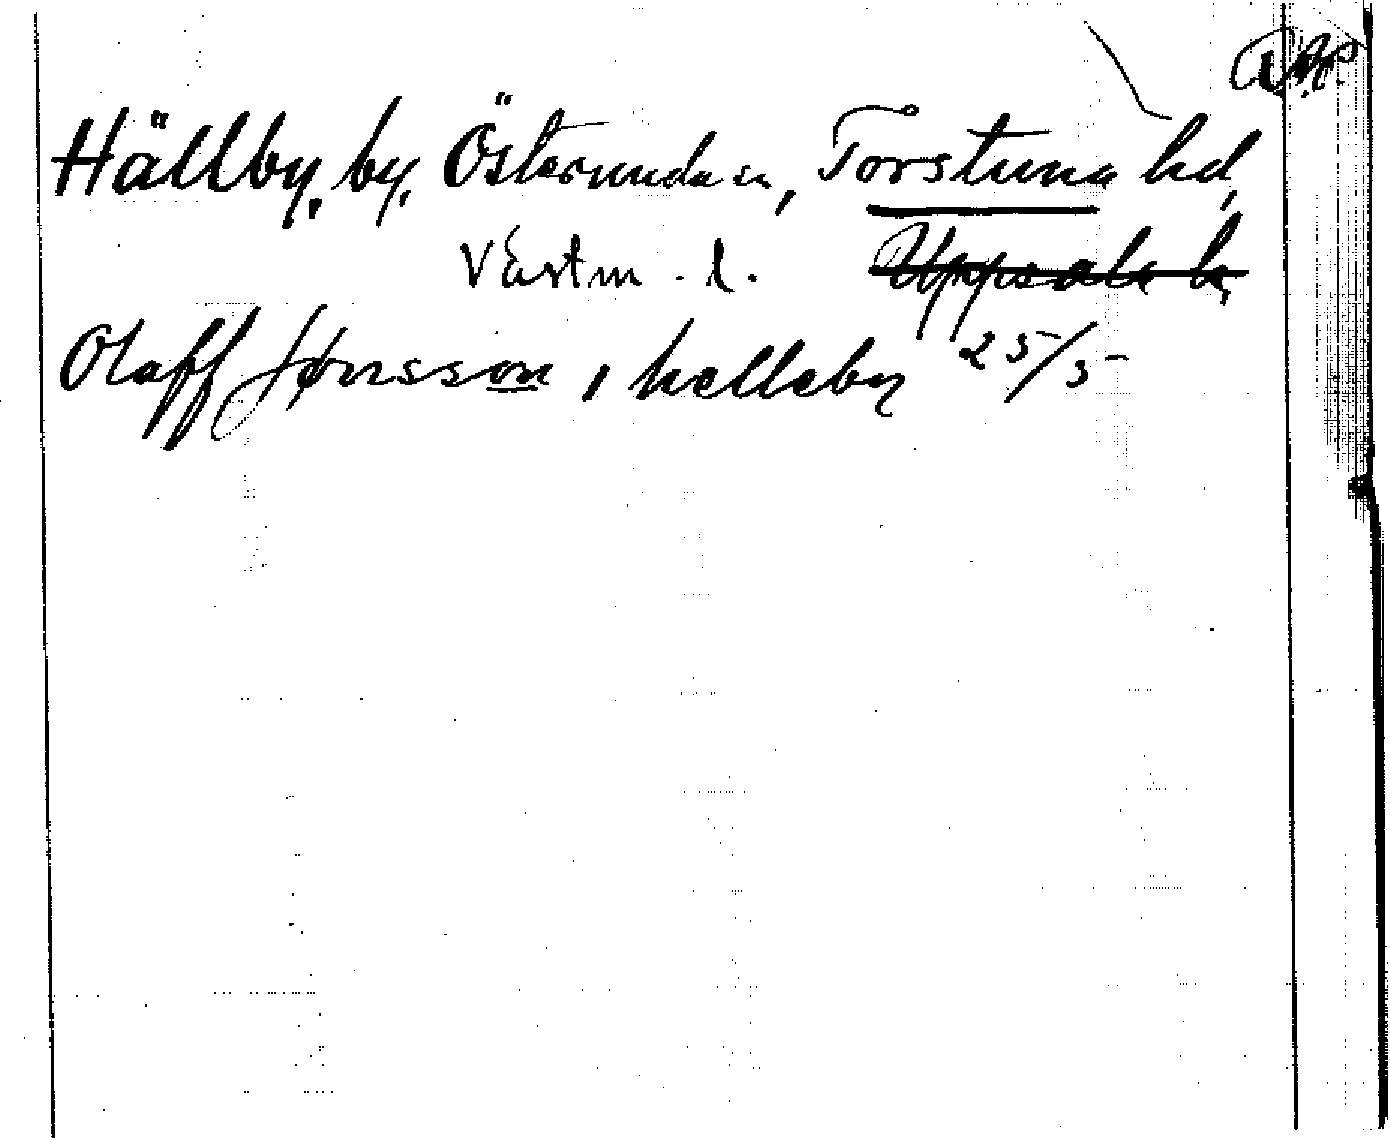 Hällby, by, Österunda sn, Torstuna hd,
Västm. l. Uppsala l.
Olaff Jønsson i helleby 25/5